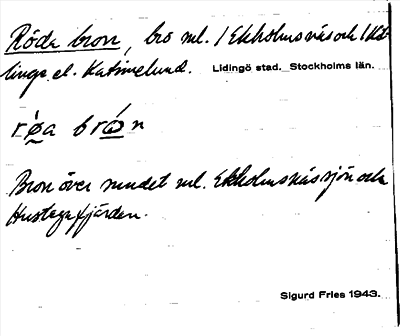 Röda bron, bro ml. Ekholmsnäs och Kat-
linge el. Katrinelund. Lidingö stad. Stockholms län.
röa brón
Bron över sundet ml. Ekholmsnässjön och
Hustegafjärden.
Sigurd Fries 1943.